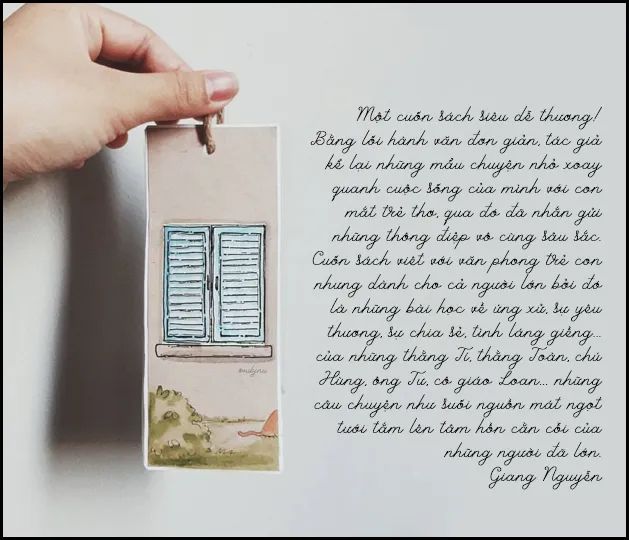 Một cuốn sách siêu dễ thương!
Bằng lối hành văn đơn giản, tác giả
kể lại những mẩu chuyện nhỏ xoay
quanh cuộc sống của mình với con
mắt trẻ thơ, qua đó đã nhắn gửi
những thông điệp vô cùng sâu sắc.
Cuốn sách viết với văn phong trẻ con
nhưng dành cho cả người lớn bởi đó
là những bài học về ứng xử, sự yêu
thương, sự chia sẻ, tình láng giềng...
của những thằng Tí, thằng Toàn, chú
Hùng, ông Tư, cô giáo Loan... những
câu chuyện như suối nguồn mát ngọt
tưới tắm lên tâm hồn cằn cỗi của
những người đã lớn.
Giang Nguyễn